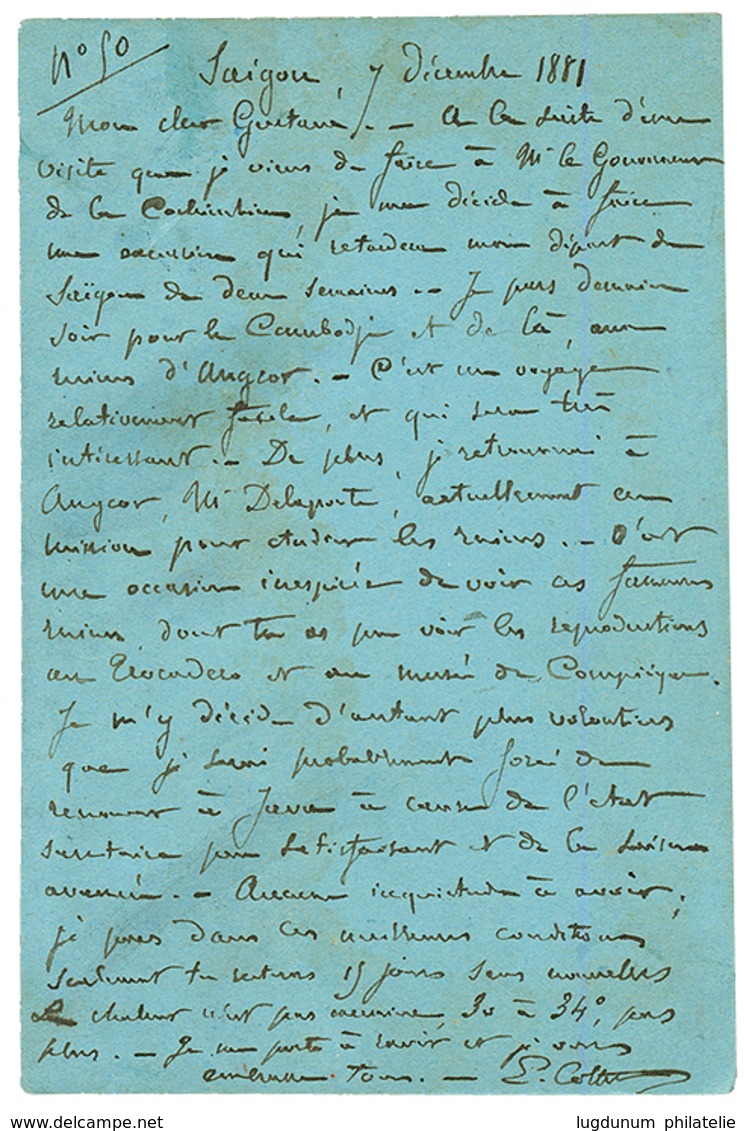 N° 50
Saigon, 7 décembre 1881
Mon cher Gustave, — A la suite d'une
visite que je viens de faire à Mr le Gouverneur
de la Cochinchine, je me décide à faire
une excursion qui retardera mon départ de
Saïgon de deux semaines. — Je pars demain
soir pour le Cambodje et de là, aux
ruines d'Angcor. — C'est un voyage
relativement facile, et qui sera très
intéressant. — De plus, je retrouverai à
Angcor, Mr Delaporte, actuellement en
mission pour étudier les ruines. — C'est
une occasion inespérée de voir ces fameuses
ruines dont tu as pu voir les reproductions
au Trocadero et au musée de Compiègne.
Je m'y décide d'autant plus volontiers
que je serai probablement forcé de
renoncer à Java à cause de l'état
sanitaire peu satisfaisant et de la saison
avancée. — Aucune inquiétude à avoir,
je pars dans les meilleures conditions
seulement tu resteras 15 jours sans nouvelles
La chaleur n'est pas excessive, 30 à 34°, pas
plus. — Je me porte à ravir et je vous
embrasse tous. — E. Cotteau
lugdunum philatelie